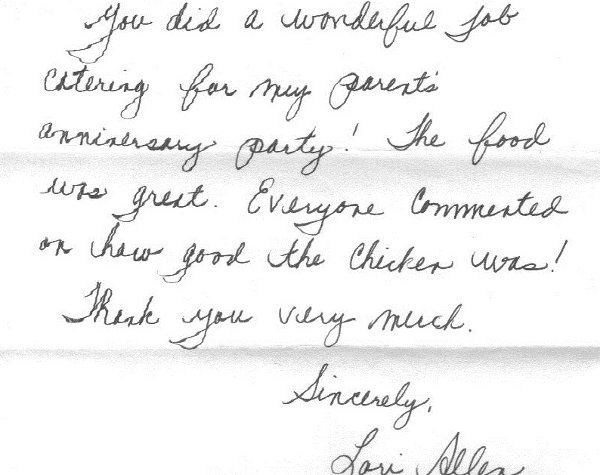 You did a wonderful job
catering for my parent's
anniversary party! The food
was great. Everyone commented
on how good the chicken was!
Thank you very much.
Sincerely,
Lori Allen